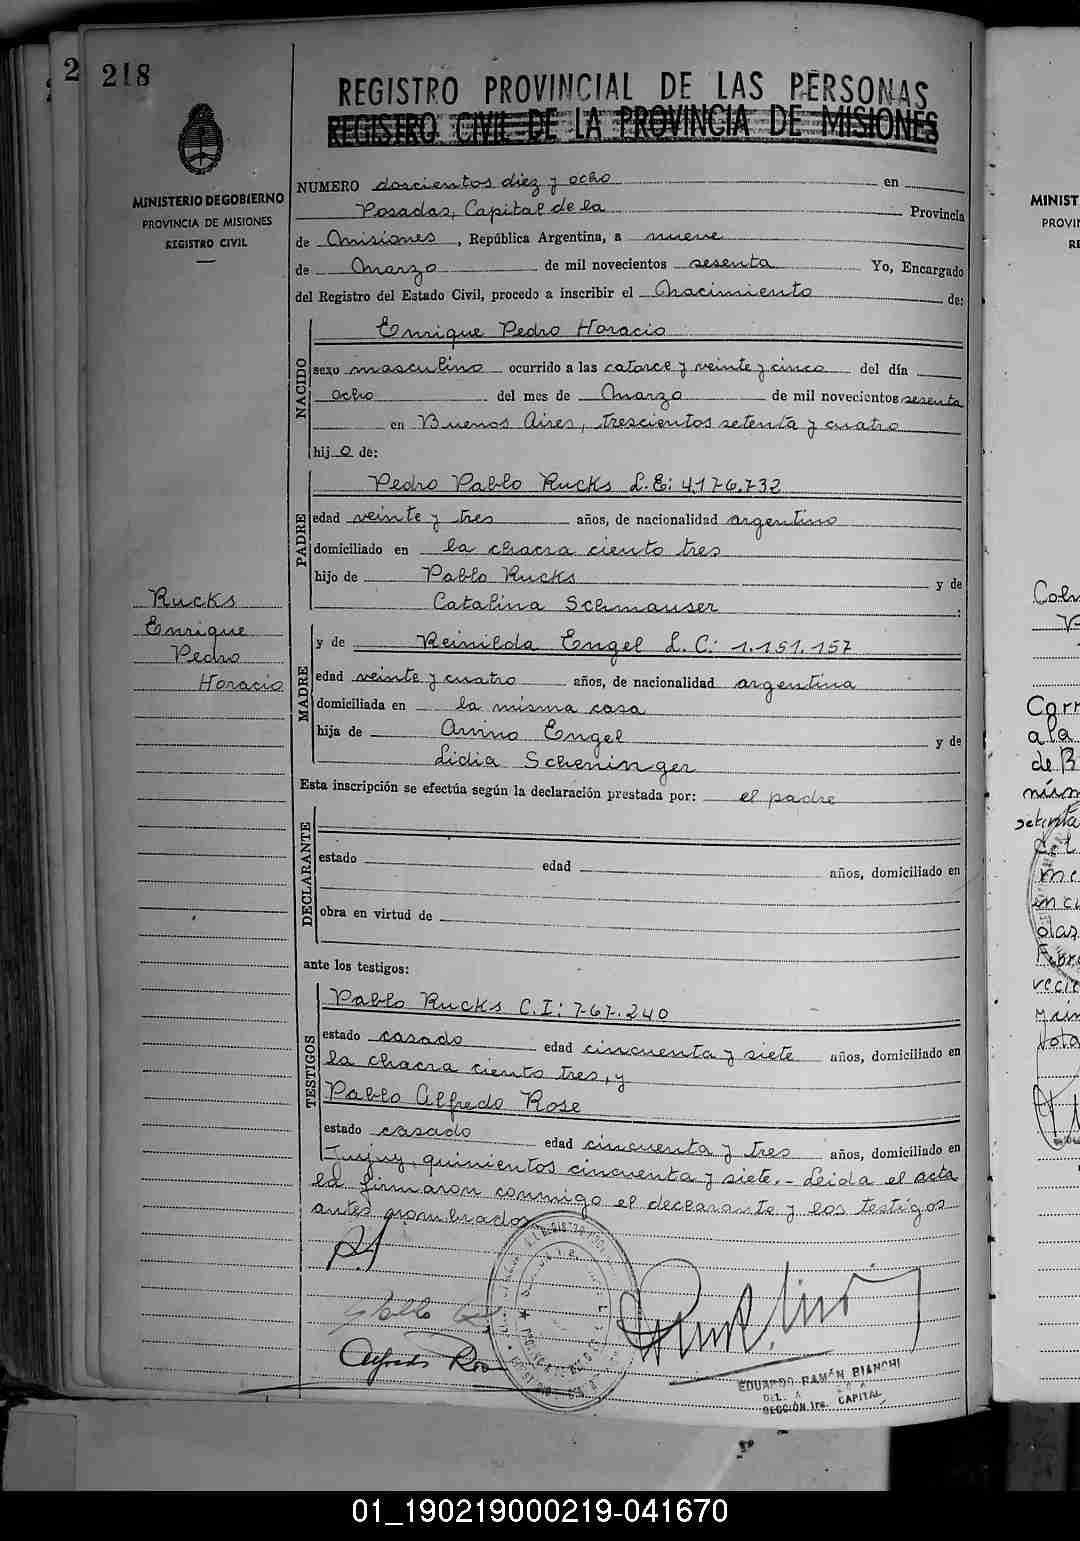 2
218
REGISTRO PROVINCIAL DE LAS PERSONAS
REGISTRO CIVIL DE LA PROVINCIA DE MISIONES
MINISTERIO DE GOBIERNO
PROVINCIA DE MISIONES
REGISTRO CIVIL
NUMERO doscientos diez y ocho en
Posadas, Capital de la Provincia
de Misiones, República Argentina, a nueve
de Marzo de mil novecientos sesenta Yo, Encargado
del Registro del Estado Civil, procedo a inscribir el Nacimiento de:
NACIDO
Enrique Pedro Horacio
sexo masculino ocurrido a las catorce y veinte y cinco del día
ocho del mes de Marzo de mil novecientos sesenta
en Buenos Aires, trescientos setenta y cuatro
hijo de:
PADRE
Pedro Pablo Rucks L.E: 4.176.732
edad veinte y tres años, de nacionalidad argentino
domiciliado en la chacra ciento tres
hijo de Pablo Rucks y de
Catalina Schmauser :
Rucks
Enrique
Pedro
Horacio
MADRE
y de Reinilda Engel L.C: 1.151.157
edad veinte y cuatro años, de nacionalidad argentina
domiciliada en la misma casa
hija de Anino Engel y de
Lidia Scheninger
Esta inscripción se efectúa según la declaración prestada por: el padre
DECLARANTE
estado edad años, domiciliado en
obra en virtud de
ante los testigos:
TESTIGOS
Pablo Rucks C.I: 767.240
estado casado edad cincuenta y siete años, domiciliado en
la chacra ciento tres, y
Pablo Alfredo Rose
estado casado edad cincuenta y tres años, domiciliado en
Jujuy, quinientos cincuenta y siete.- Leida el acta
la firmaron conmigo el declarante y los testigos
antes nombrados
Pablo
Alfredo Rose
EDUARDO RAMÓN BIANCHI
SECCIÓN 1ra. CAPITAL
MINIST
PROVI
RE
Corr
a la
de B
01_190219000219-041670